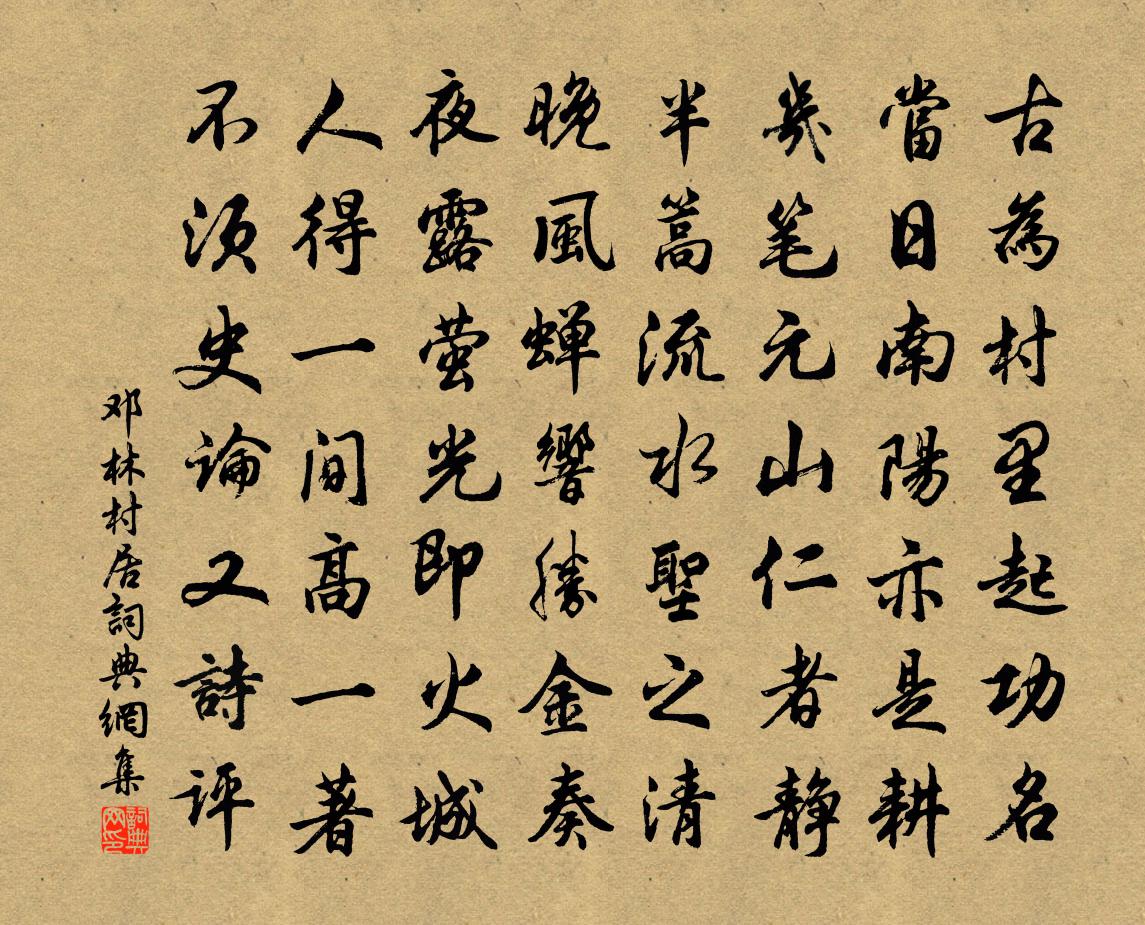 古為村里起功名
當日南陽亦是耕
幾笔元山仁者静
半篙流水聖之清
晚風蝉響勝金奏
夜露萤光即火城
人得一间高一著
不须史論又詩评
邓林村居詞典網集
詞典网印